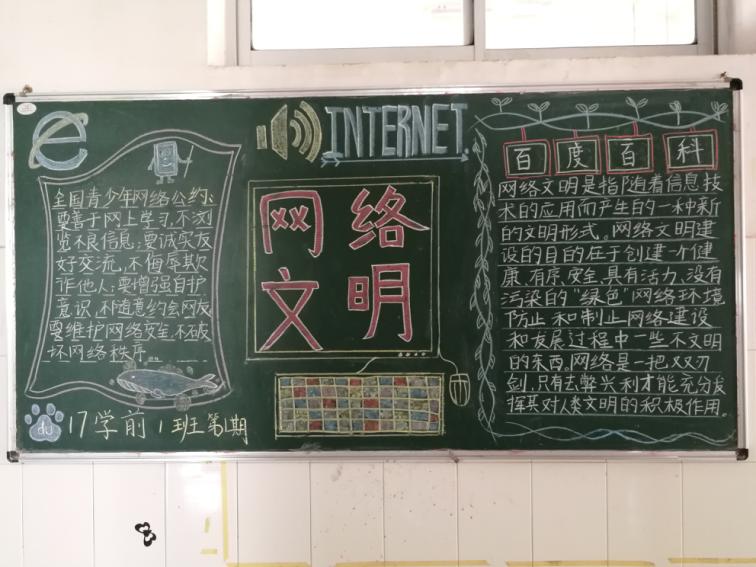 全国青少年网络公约:
要善于网上学习,不浏
览不良信息;要诚实友
好交流,不侮辱欺
诈他人;要增强自护
意识,不随意约会网友
要维护网络安全,不破
坏网络秩序。
du
17学前1班第1期
INTERNET
网络
文明
百度百科
网络文明是指随着信息技
术的应用而产生的一种新
的文明形式。网络文明建
设的目的在于创建一个健
康、有序、安全、具有活力、没有
污染的“绿色”网络环境
防止和制止网络建设
和发展过程中一些不文明
的东西。网络是一把双刃
剑,只有去弊兴利才能充分发
挥其对人类文明的积极作用。